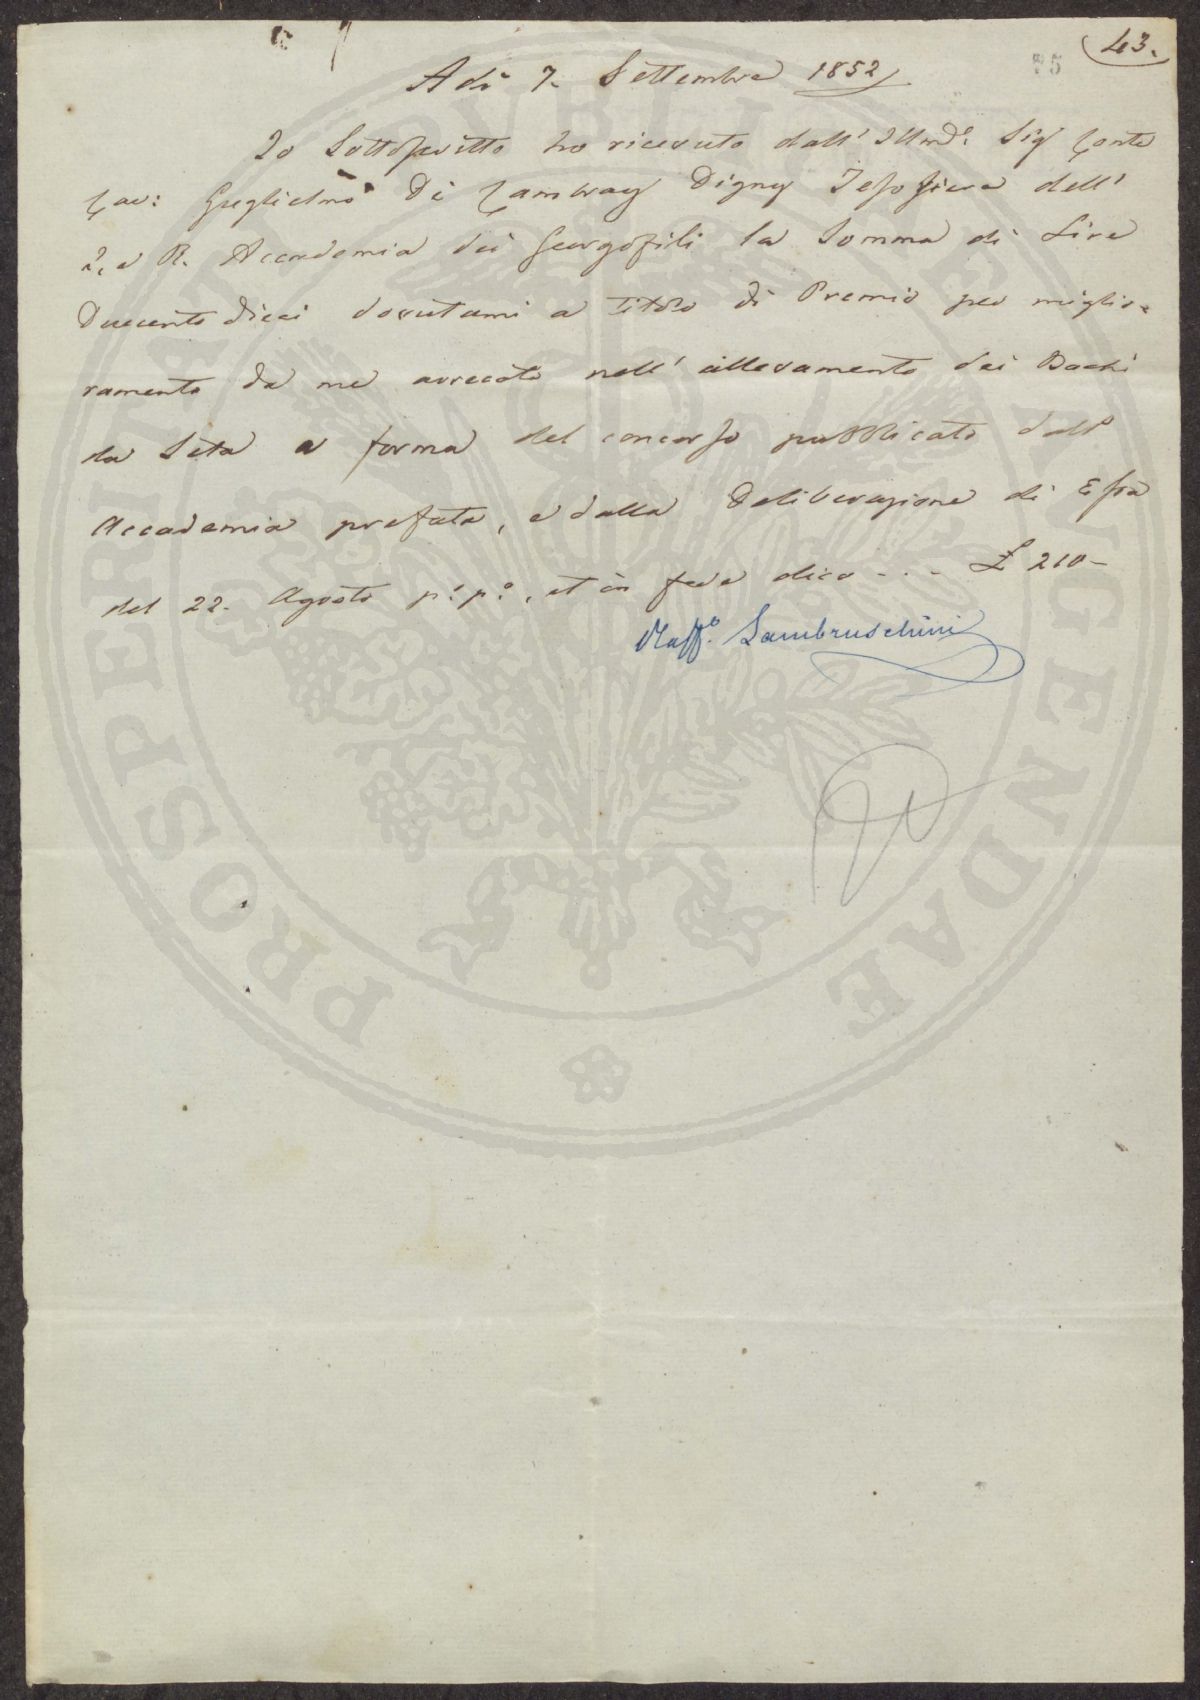 43.
75
Adì 7. Settembre 1852
Io Sottoscritto ho ricevuto dall' Illmo. Sig Conte
Cav: Guglielmo De Cambray Digny Tesoriere dell'
I. e R. Accademia dei Georgofili la Somma di Lire
Duecento dieci dovutami a titolo di Premio per miglio=
ramento da me arrecato nell' allevamento dei Bachi
da Seta a forma del concorso pubblicato dall'
Accademia prefata, e dalla Deliberazione di Essa
del 22. Agosto p.º p.º, et in fede dico - . . - £ 210 -
Raff.º Lambruschini
PROSPERITATI PUBLICAE AUGENDAE